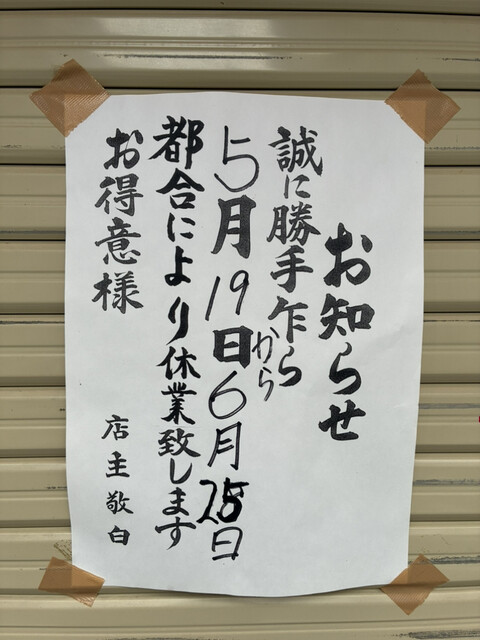 お知らせ
誠に勝手乍ら
5月19日から6月25日
都合により休業致します
お得意様
店主敬白